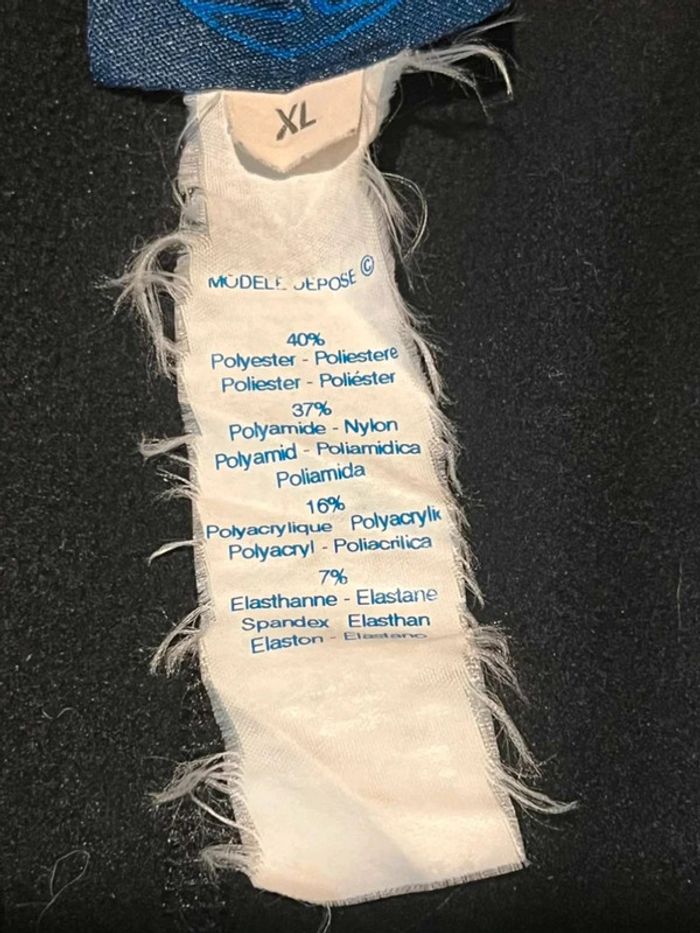 XL
MODELE DEPOSE ©
40%
Polyester - Poliestere
Poliester - Poliéster
37%
Polyamide - Nylon
Polyamid - Poliamidica
Poliamida
16%
Polyacrylique Polyacrylic
Polyacryl - Poliacrilica
7%
Elasthanne - Elastane
Spandex Elasthan
Elaston - Elastano